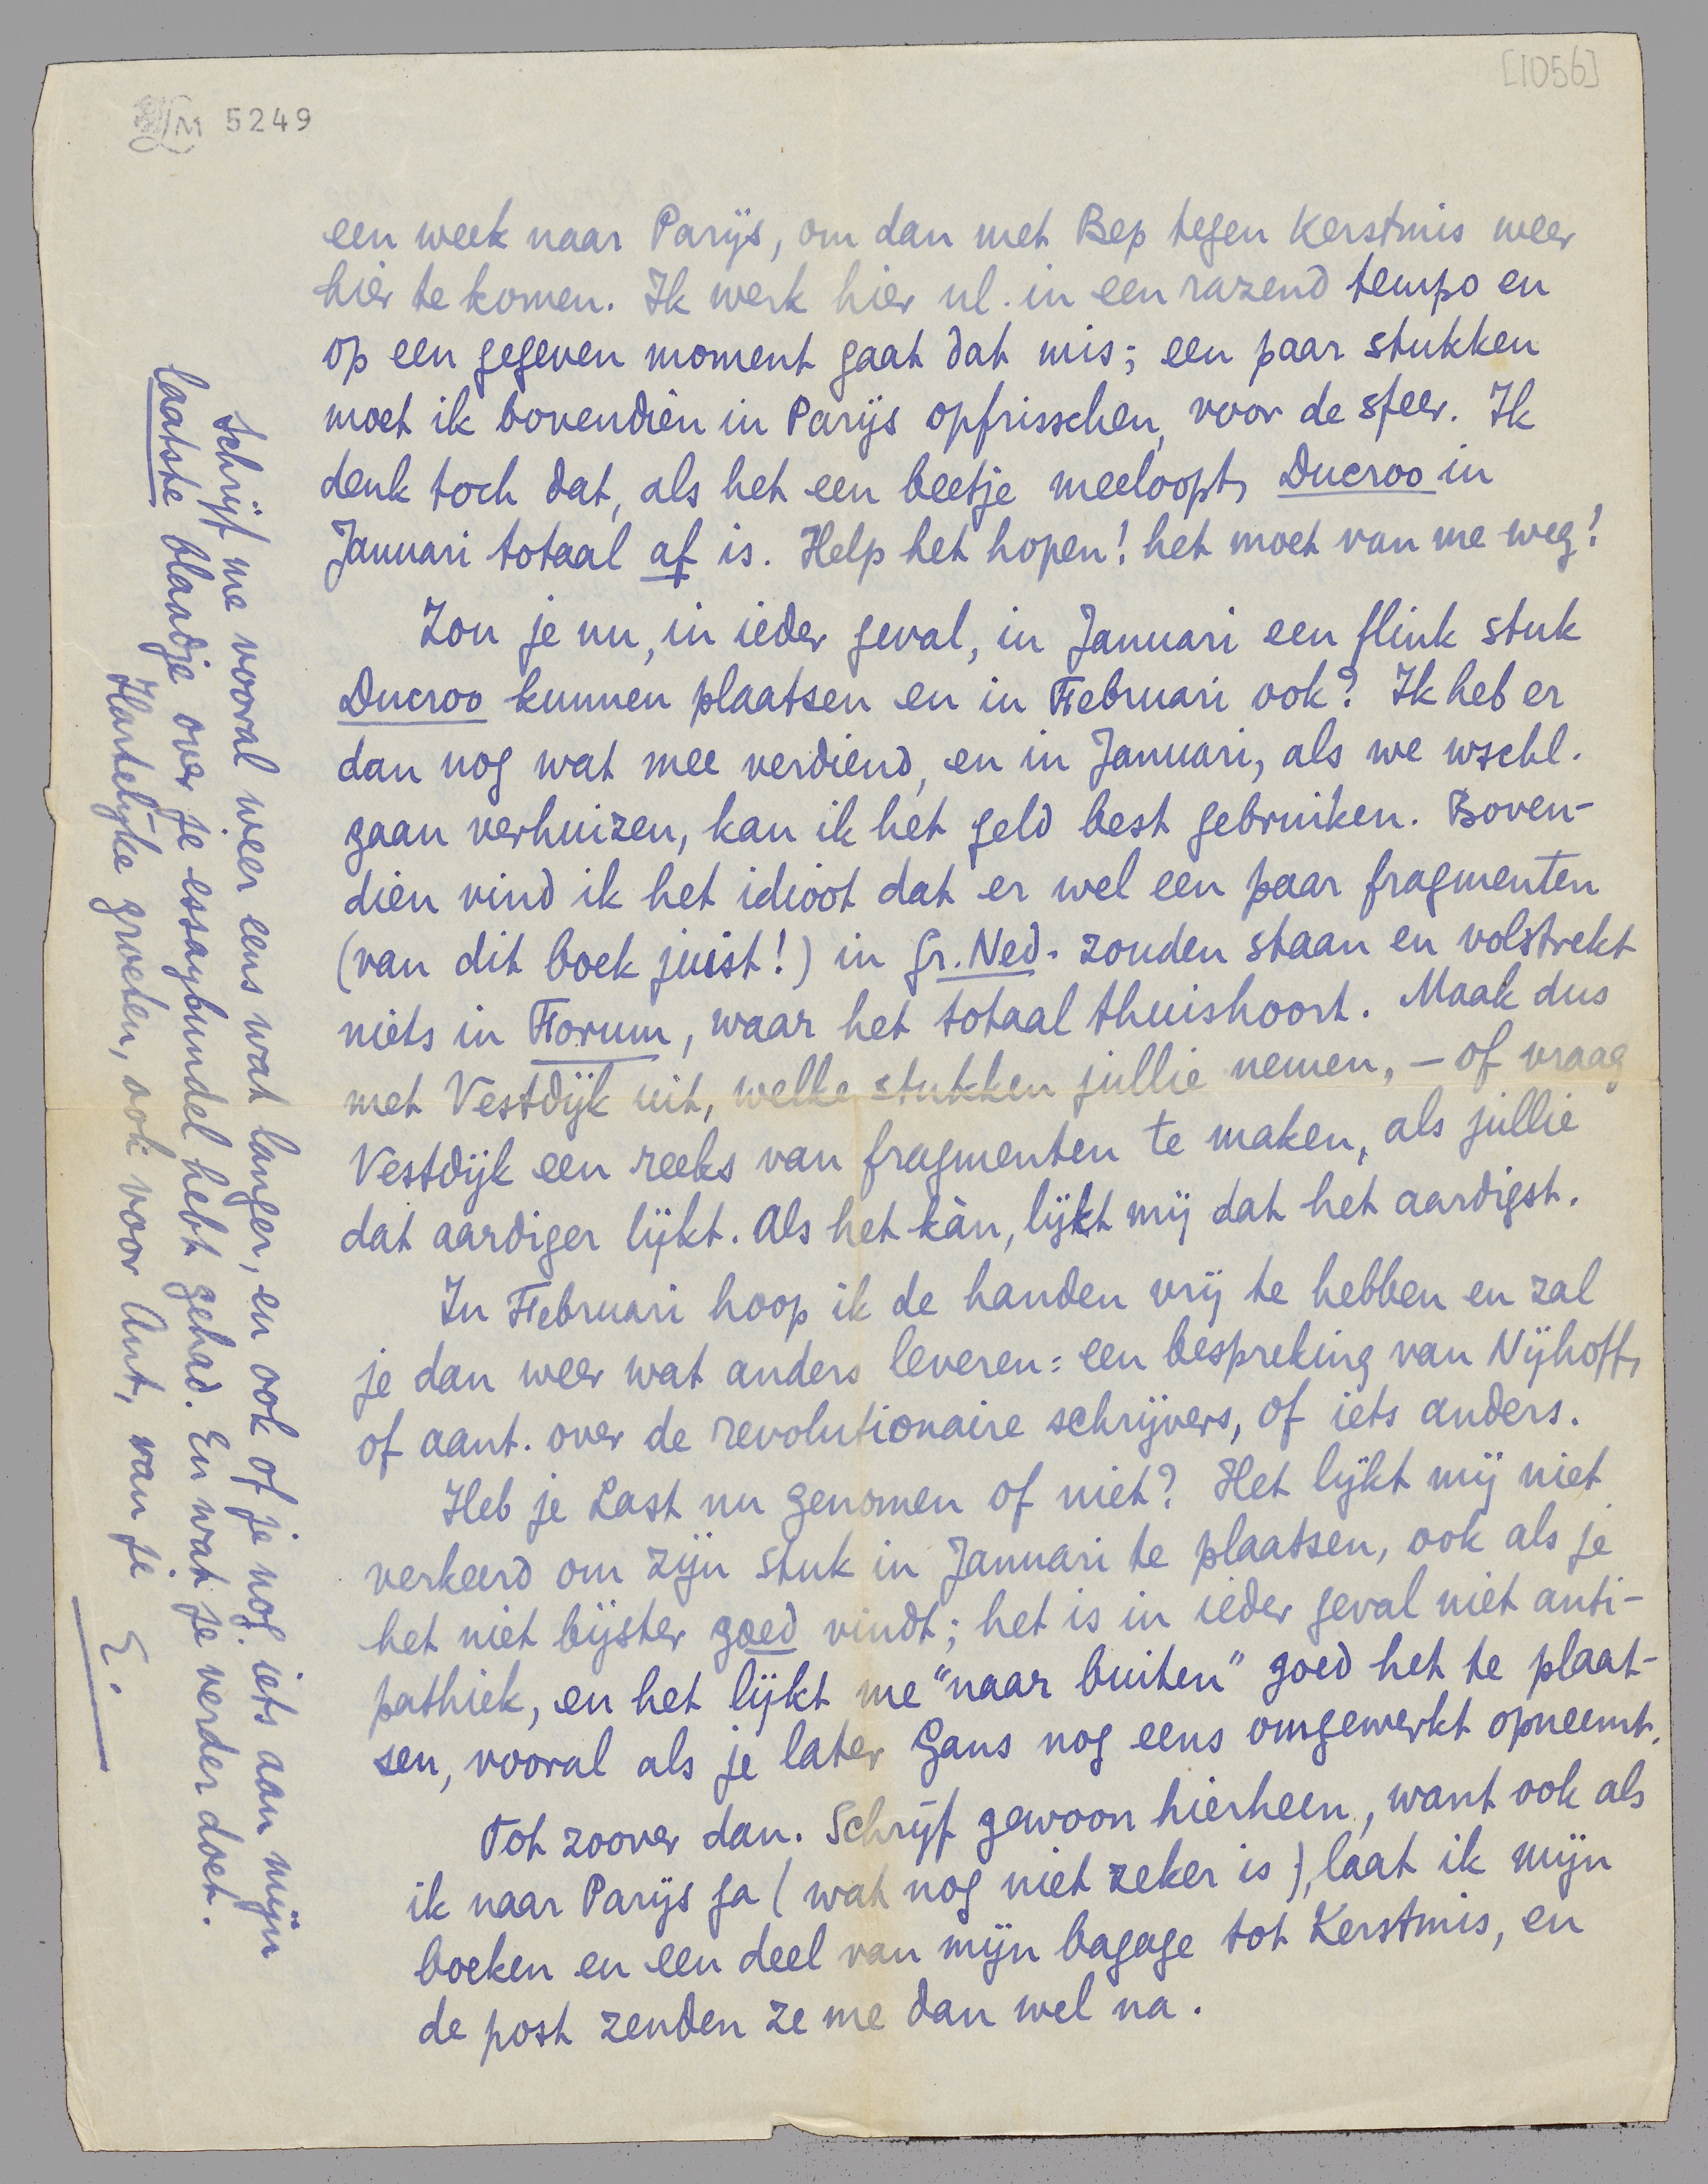 [1056]
LM 5249
een week naar Parijs, om dan met Bep tegen Kerstmis weer
hier te komen. Ik werk hier nl. in een razend tempo en
op een gegeven moment gaat dat mis; een paar stukken
moet ik bovendien in Parijs opfrisschen, voor de sfeer. Ik
denk toch dat, als het een beetje meeloopt, Ducroo in
Januari totaal af is. Help het hopen! het moet van me weg!
Zou je nu, in ieder geval, in Januari een flink stuk
Ducroo kunnen plaatsen en in Februari ook? Ik heb er
dan nog wat mee verdiend, en in Januari, als we wschl.
gaan verhuizen, kan ik het geld best gebruiken. Boven-
dien vind ik het idioot dat er wel een paar fragmenten
(van dit boek juist!) in Gr. Ned. zouden staan en volstrekt
niets in Forum, waar het totaal thuishoort. Maak dus
met Vestdijk uit, welke stukken jullie nemen, – of vraag
Vestdijk een reeks van fragmenten te maken, als jullie
dat aardiger lijkt. Als het kàn, lijkt mij dat het aardigst.
In Februari hoop ik de handen vrij te hebben en zal
je dan weer wat anders leveren: een bespreking van Nijhoff,
of aant. over de revolutionaire schrijvers, of iets anders.
Heb je Last nu genomen of niet? Het lijkt mij niet
verkeerd om zijn stuk in Januari te plaatsen, ook als je
het niet bijster goed vindt; het is in ieder geval niet anti-
pathiek, en het lijkt me "naar buiten" goed het te plaat-
sen, vooral als je later Gans nog eens omgewerkt opneemt.
Tot zoover dan. Schrijf gewoon hierheen, want ook als
ik naar Parijs ga (wat nog niet zeker is), laat ik mijn
boeken en een deel van mijn bagage tot Kerstmis, en
de post zenden ze me dan wel na.
Schrijf me vooral weer eens wat langer, en ook of je nog iets aan mijn
laatste blaadje over je essaybundel hebt gehad. En wat je verder doet.
Hartelijke groeten, ook voor Ant, van je
E.